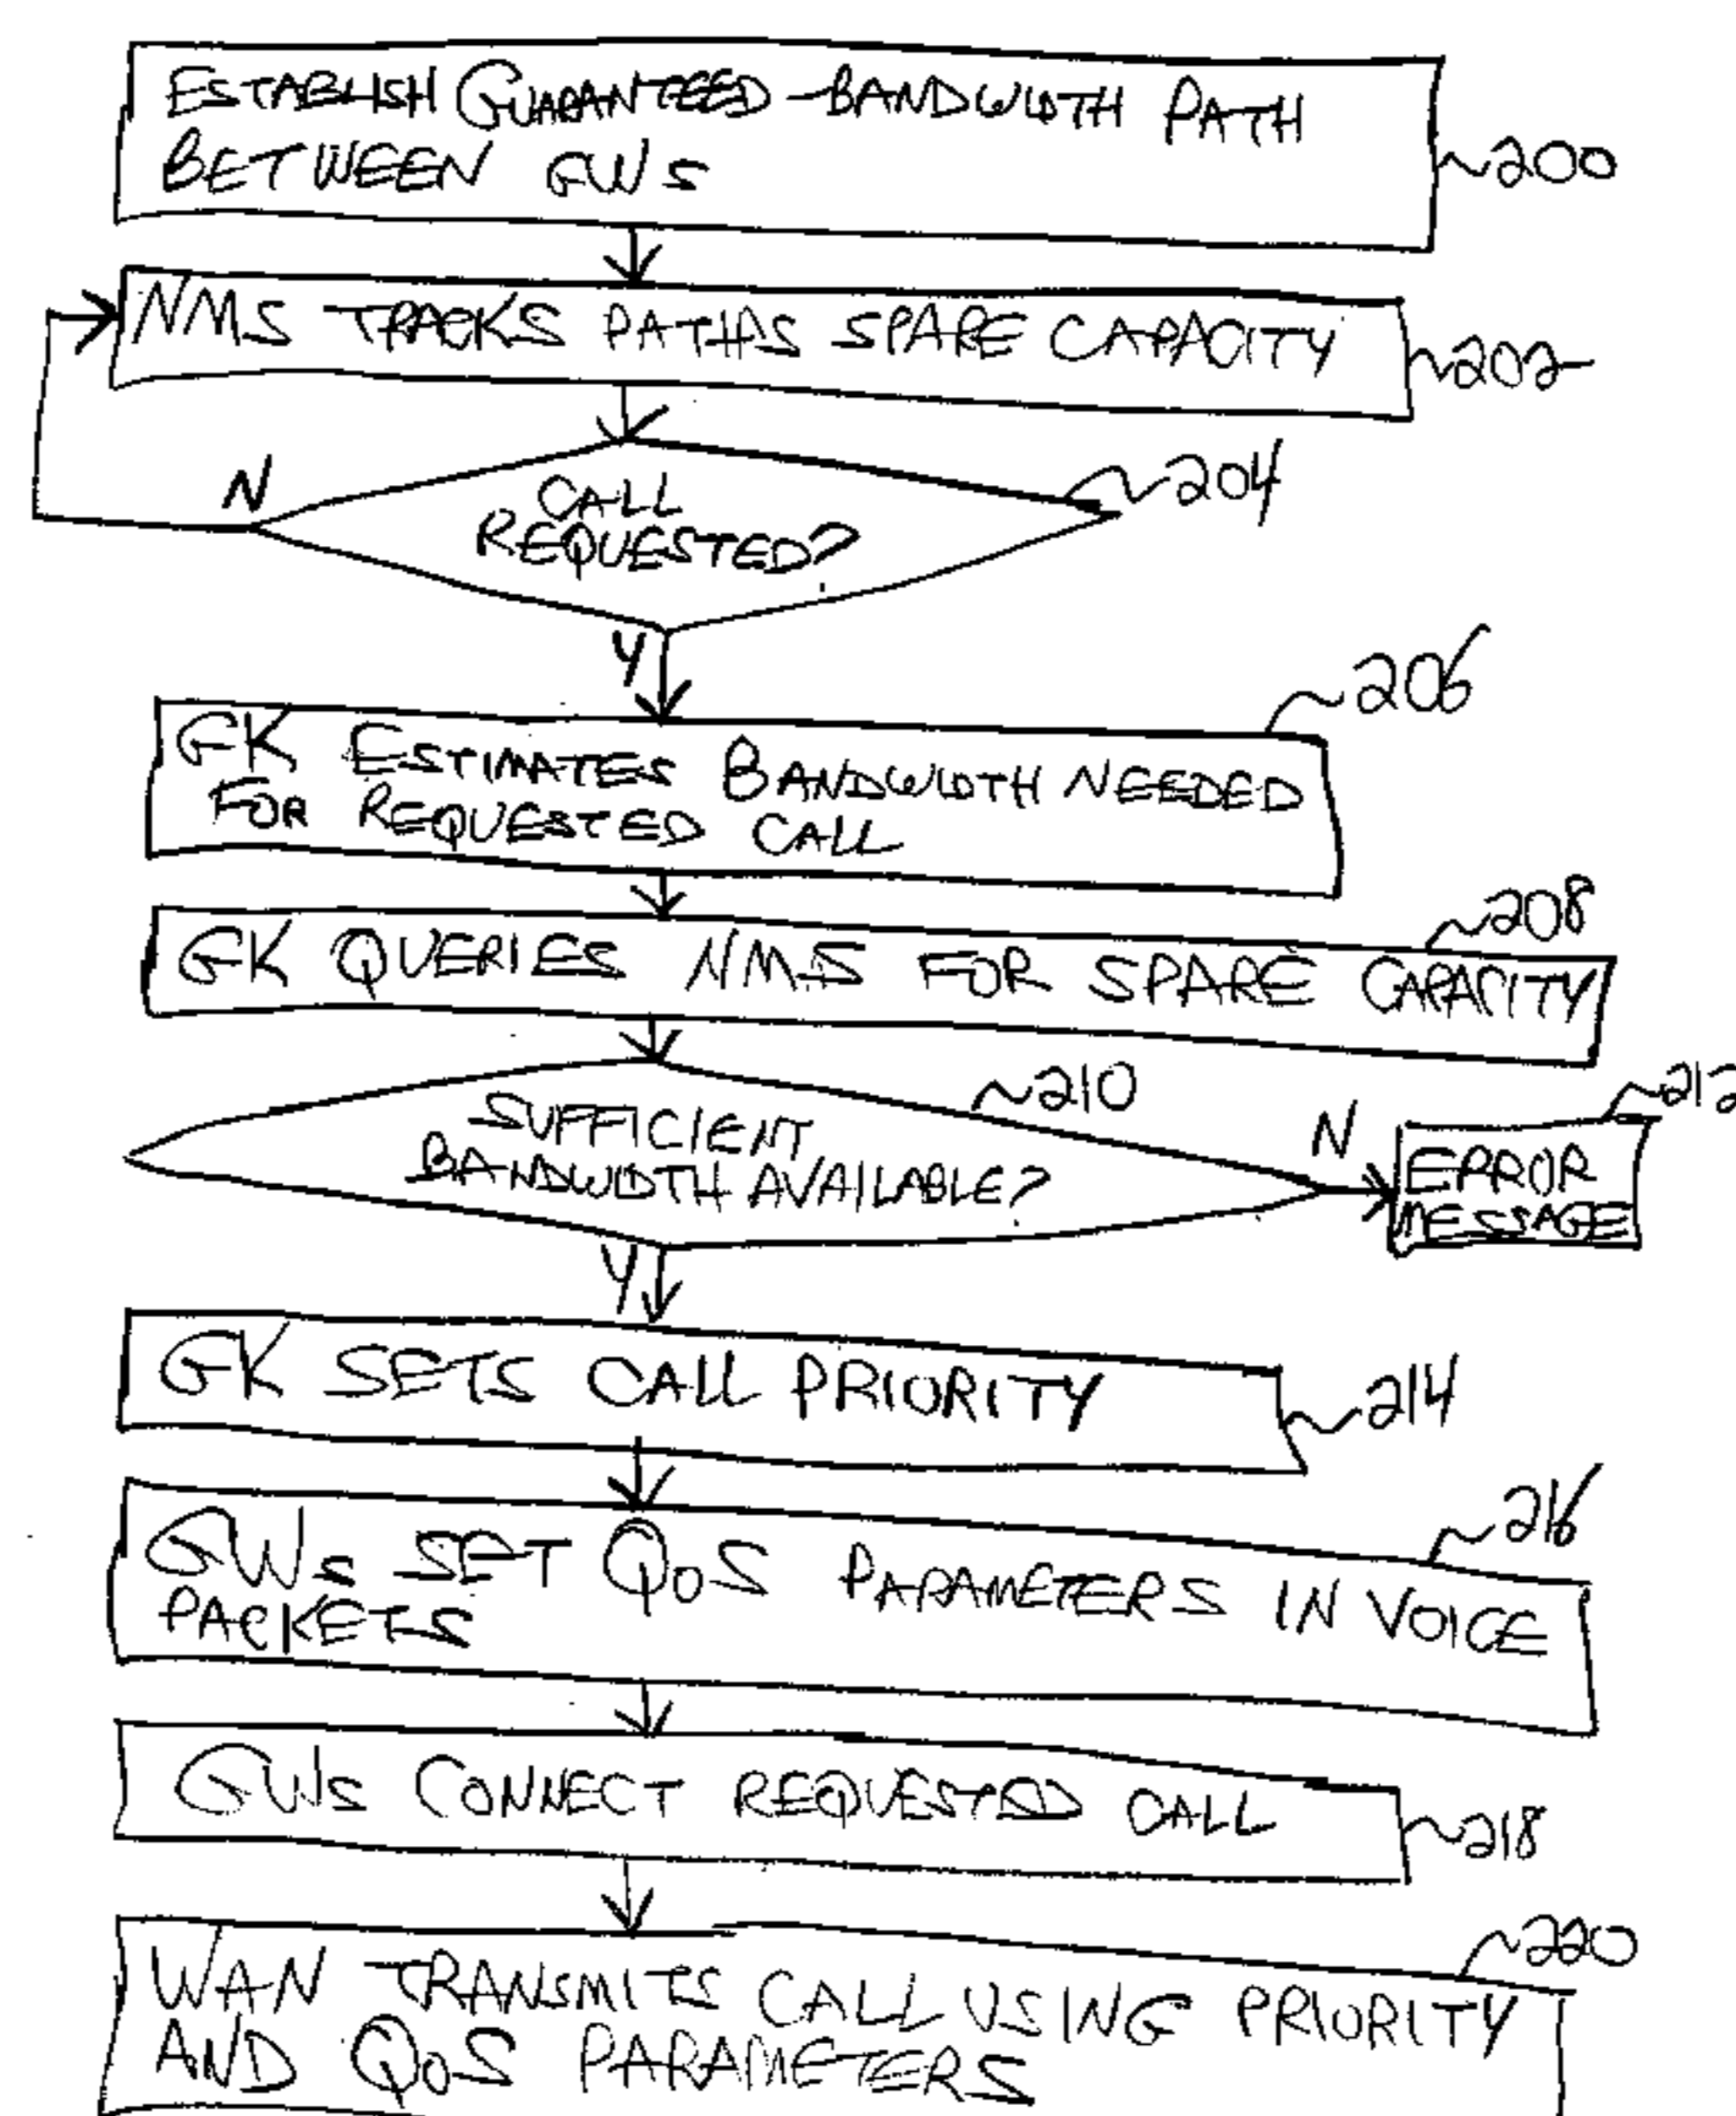 ESTABLISH GUARANTEED-BANDWIDTH PATH
BETWEEN GWs
200
NMS TRACKS PATHS SPARE CAPACITY
202
N
CALL
REQUESTED?
204
Y
206
GK ESTIMATES BANDWIDTH NEEDED
FOR REQUESTED CALL
208
GK QUERIES NMS FOR SPARE CAPACITY
210
SUFFICIENT
BANDWIDTH AVAILABLE?
N
212
ERROR
MESSAGE
Y
GK SETS CALL PRIORITY
214
216
GWs SET QoS PARAMETERS IN VOICE
PACKETS
GWs CONNECT REQUESTED CALL
218
220
WAN TRANSMITS CALL USING PRIORITY
AND QoS PARAMETERS